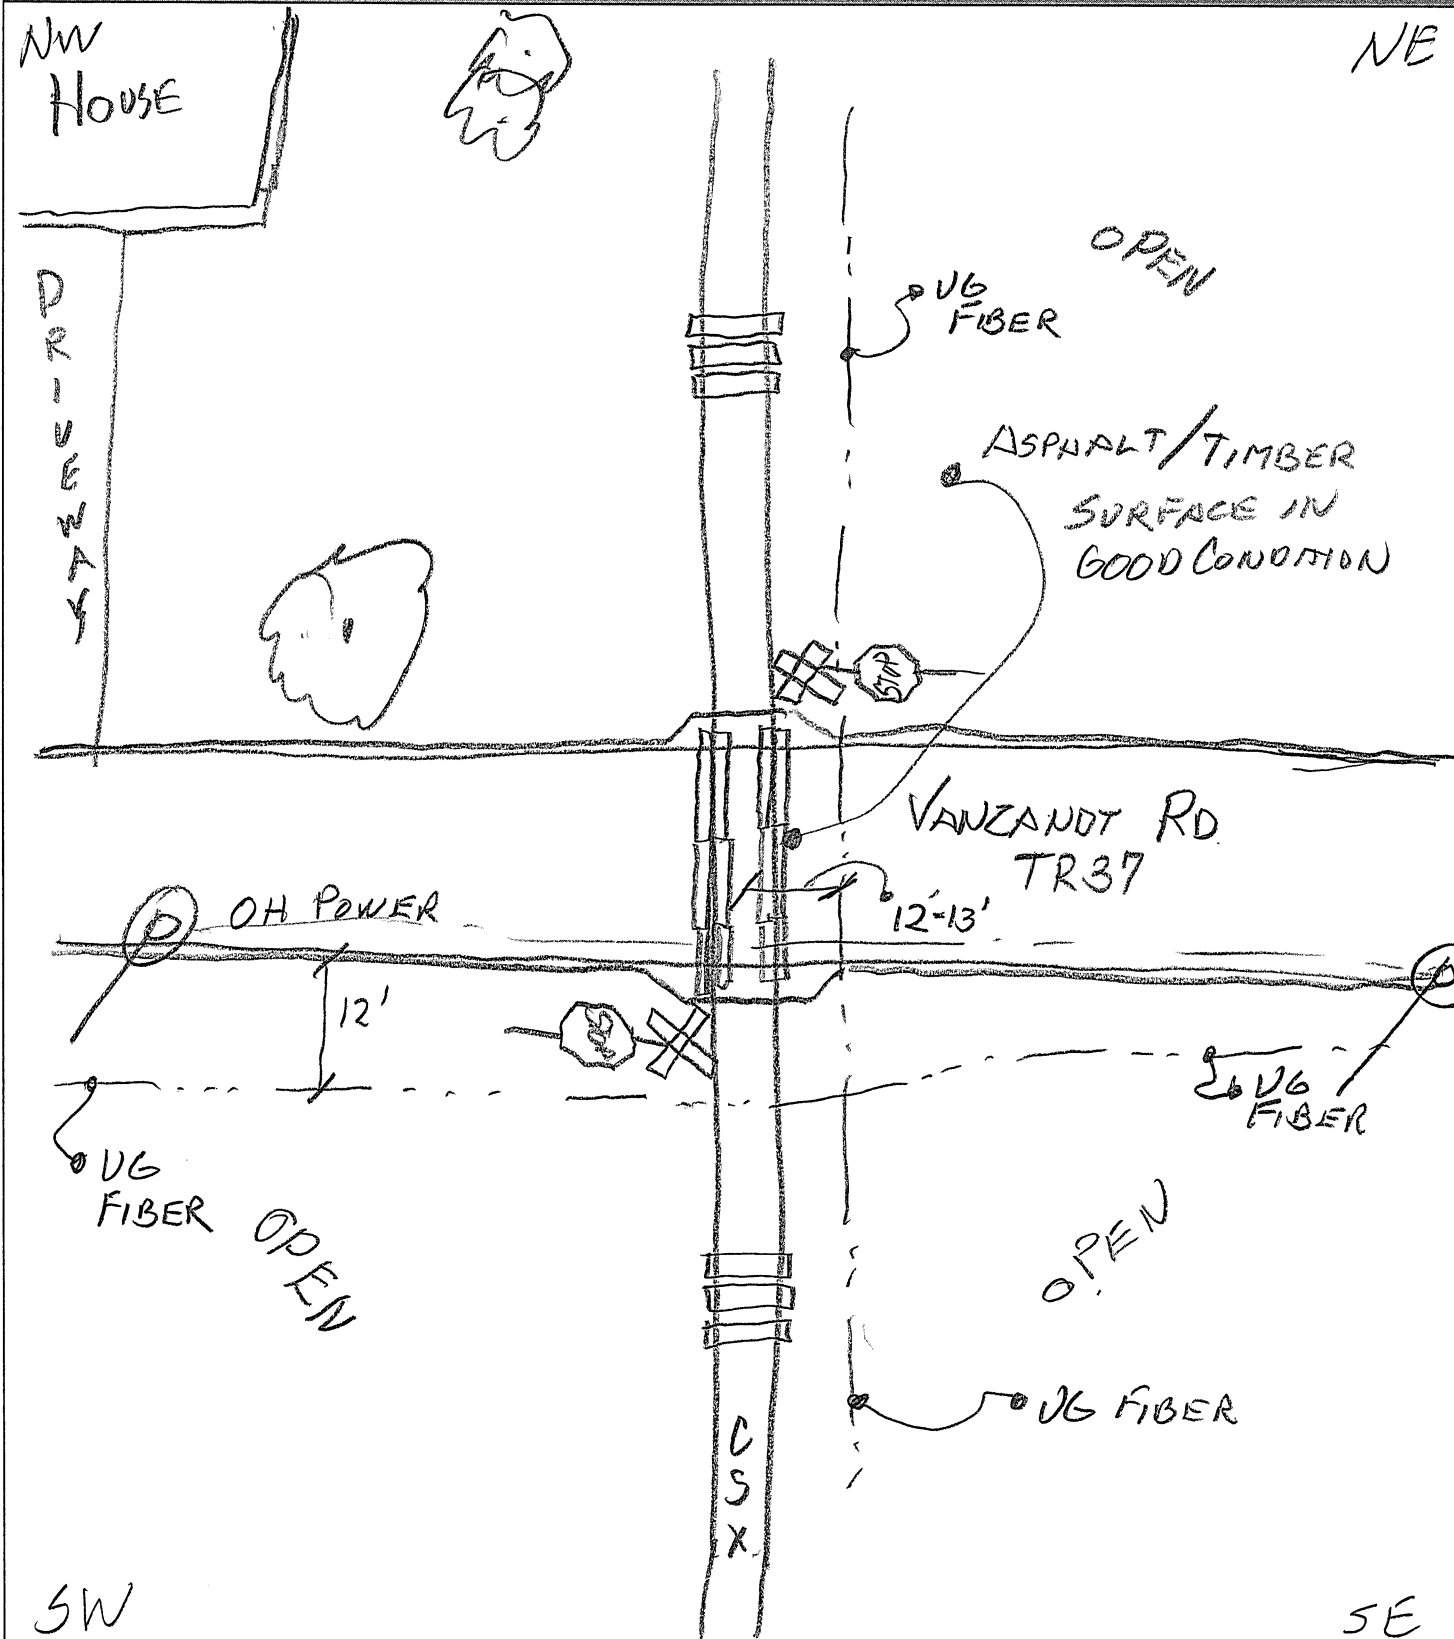 NW
NE
HOUSE
DRIVEWAY
OPEN
UG
FIBER
ASPHALT/TIMBER
SURFACE IN
GOOD CONDITION
STOP
VANZANDT RD
TR37
OH POWER
12'-13'
12'
STOP
UG
FIBER
UG
FIBER
OPEN
OPEN
UG FIBER
CSX
SW
SE